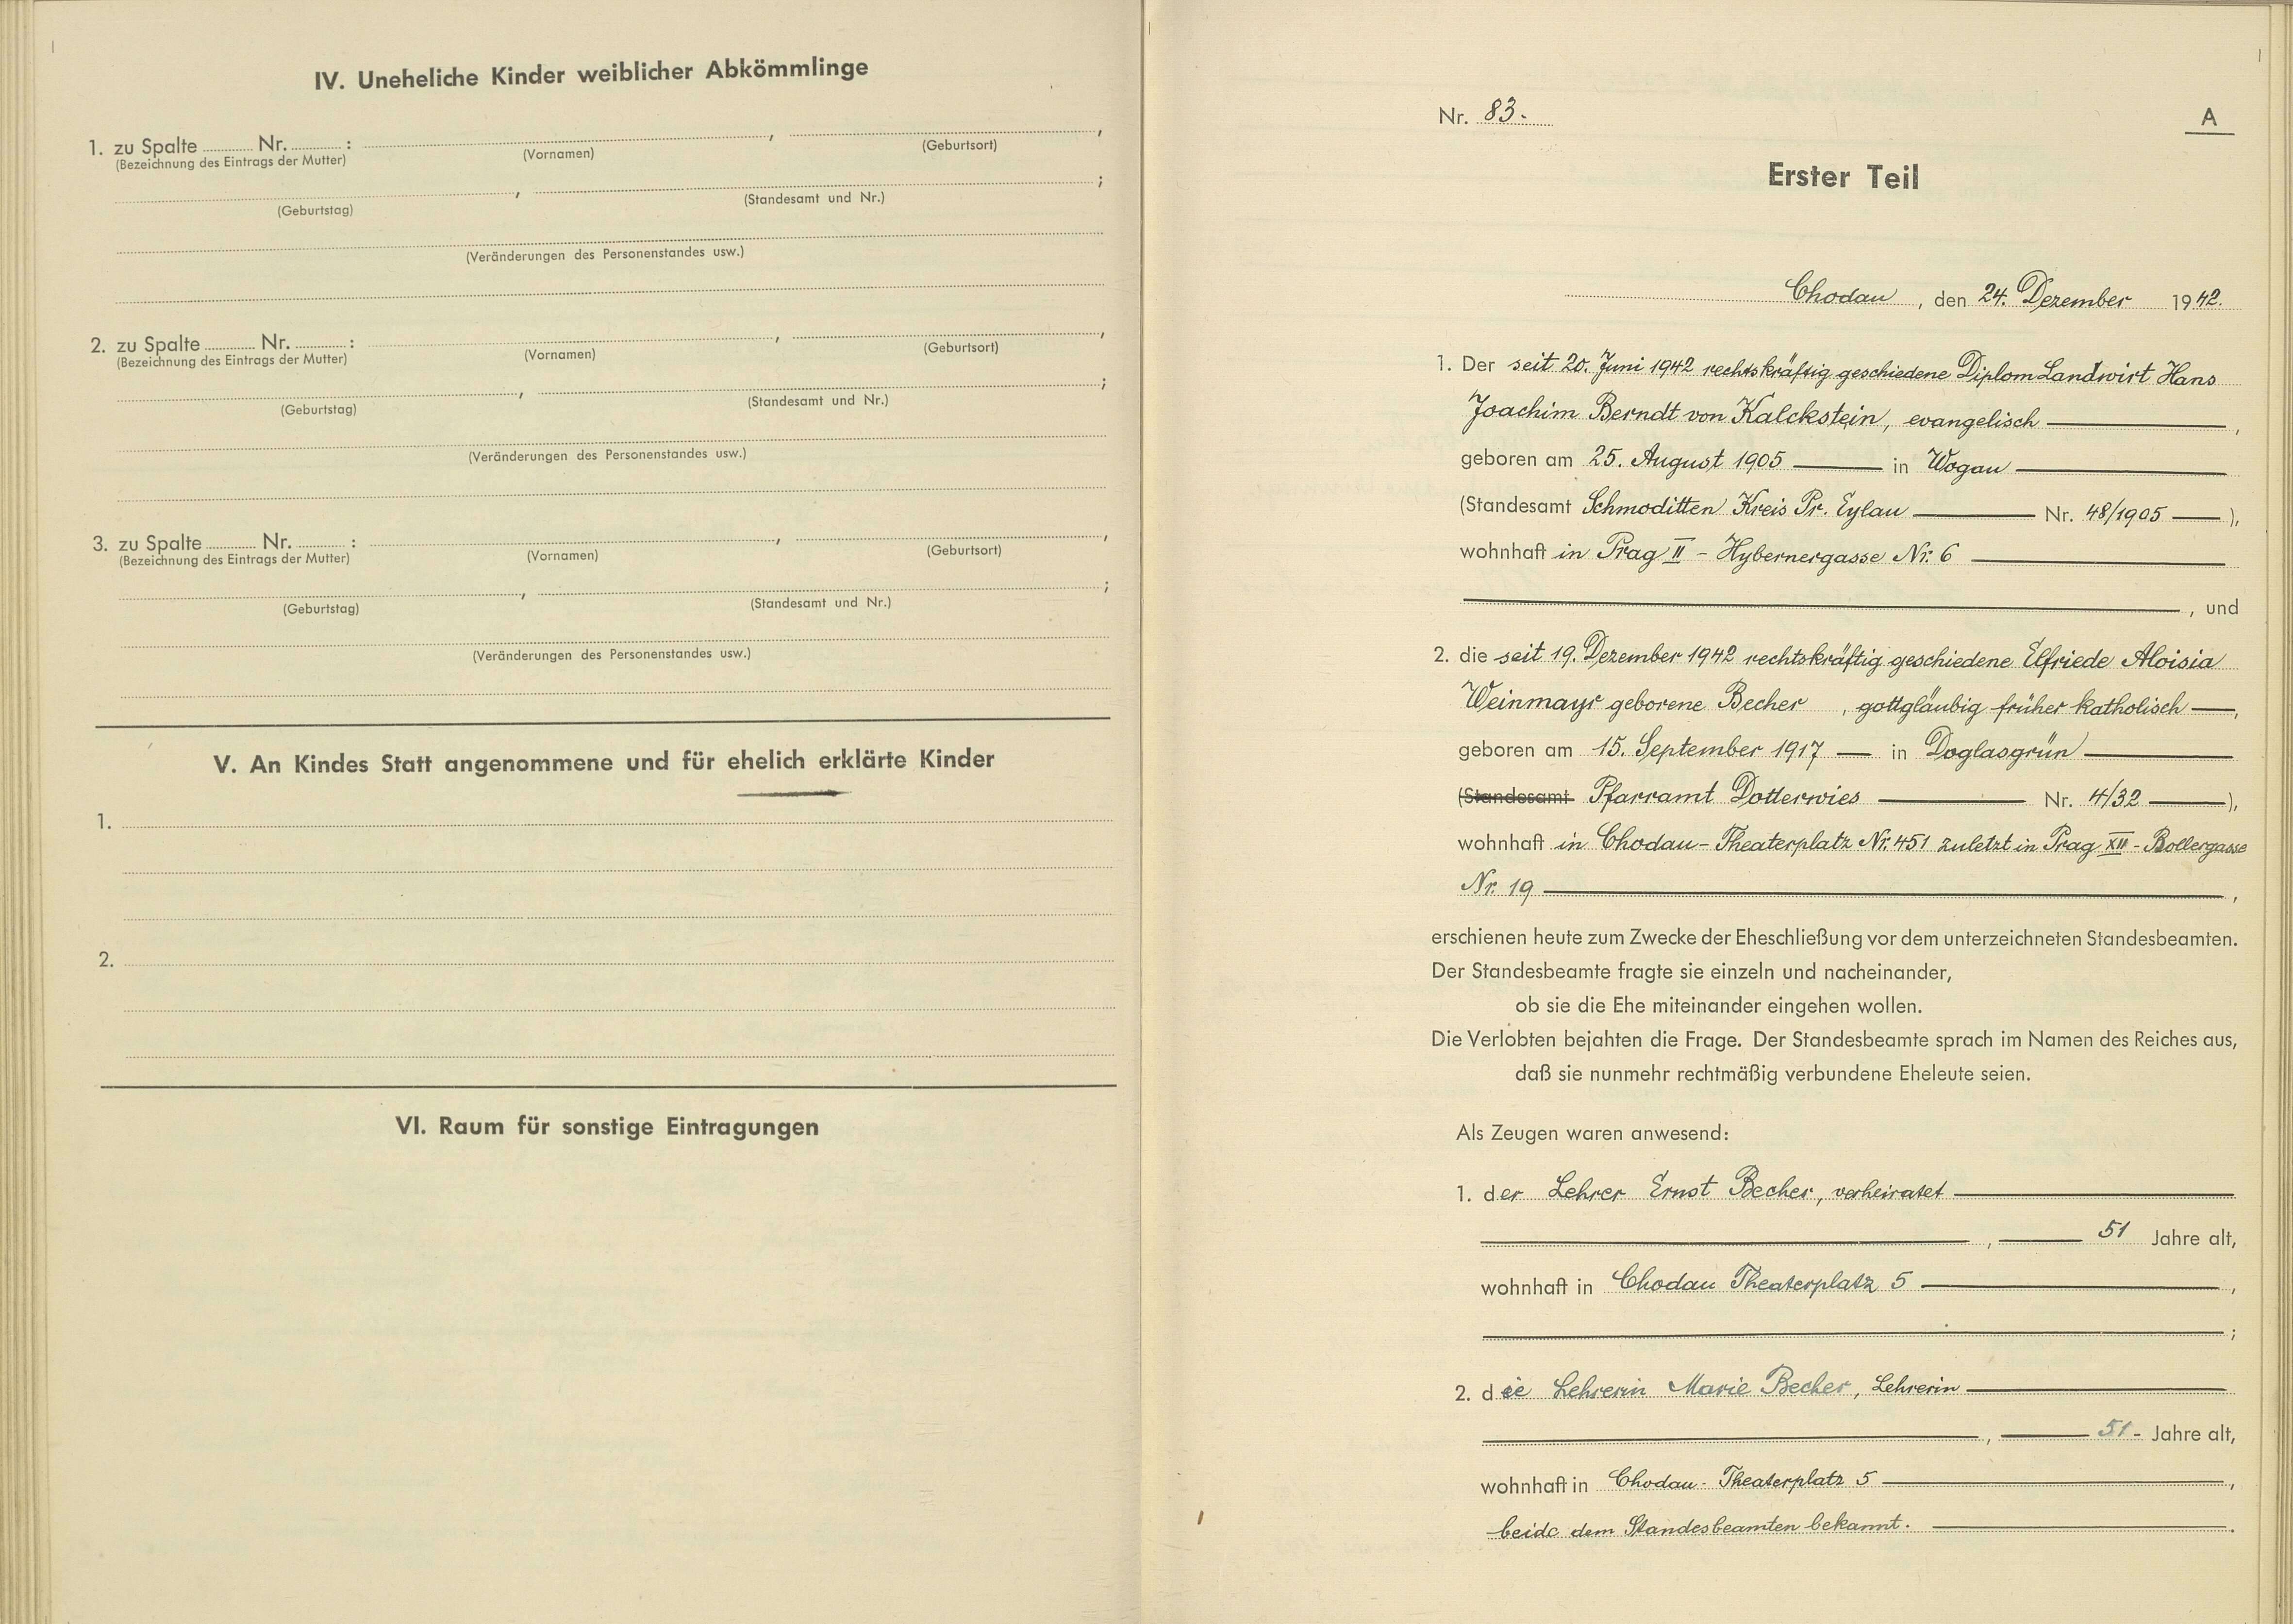 IV. Uneheliche Kinder weiblicher Abkömmlinge
1. zu Spalte ........ Nr. ........ : ........, ........,
(Bezeichnung des Eintrags der Mutter) (Vornamen) (Geburtsort)
........, ........;
(Geburtstag) (Standesamt und Nr.)
(Veränderungen des Personenstandes usw.)
2. zu Spalte ........ Nr. ........ : ........, ........,
(Bezeichnung des Eintrags der Mutter) (Vornamen) (Geburtsort)
........, ........;
(Geburtstag) (Standesamt und Nr.)
(Veränderungen des Personenstandes usw.)
3. zu Spalte ........ Nr. ........ : ........, ........,
(Bezeichnung des Eintrags der Mutter) (Vornamen) (Geburtsort)
........, ........;
(Geburtstag) (Standesamt und Nr.)
(Veränderungen des Personenstandes usw.)
V. An Kindes Statt angenommene und für ehelich erklärte Kinder
1.
2.
VI. Raum für sonstige Eintragungen
Nr. 83.
A
Erster Teil
Chodau, den 24. Dezember 1942.
1. Der seit 20. Juni 1942 rechtskräftig geschiedene Diplom Landwirt Hans
Joachim Berndt von Kalckstein, evangelisch ,
geboren am 25. August 1905 in Wogau
(Standesamt Schmoditten Kreis Pr. Eylau Nr. 48/1905 ),
wohnhaft in Prag II - Hybernergasse Nr. 6
, und
2. die seit 19. Dezember 1942 rechtskräftig geschiedene Elfriede Aloisia
Weinmayr geborene Becher , gottgläubig früher katholisch ,
geboren am 15. September 1917 in Doglasgrün
(Standesamt Pfarramt Dotterwies Nr. 4/32 ),
wohnhaft in Chodau - Theaterplatz Nr. 451 zuletzt in Prag XII - Bollergasse
Nr. 19 ,
erschienen heute zum Zwecke der Eheschließung vor dem unterzeichneten Standesbeamten.
Der Standesbeamte fragte sie einzeln und nacheinander,
ob sie die Ehe miteinander eingehen wollen.
Die Verlobten bejahten die Frage. Der Standesbeamte sprach im Namen des Reiches aus,
daß sie nunmehr rechtmäßig verbundene Eheleute seien.
Als Zeugen waren anwesend:
1. der Lehrer Ernst Becher, verheiratet
, 51 Jahre alt,
wohnhaft in Chodau Theaterplatz 5 ,
;
2. die Lehrerin Marie Becher, Lehrerin
, 51 - Jahre alt,
wohnhaft in Chodau - Theaterplatz 5 ,
beide dem Standesbeamten bekannt. .